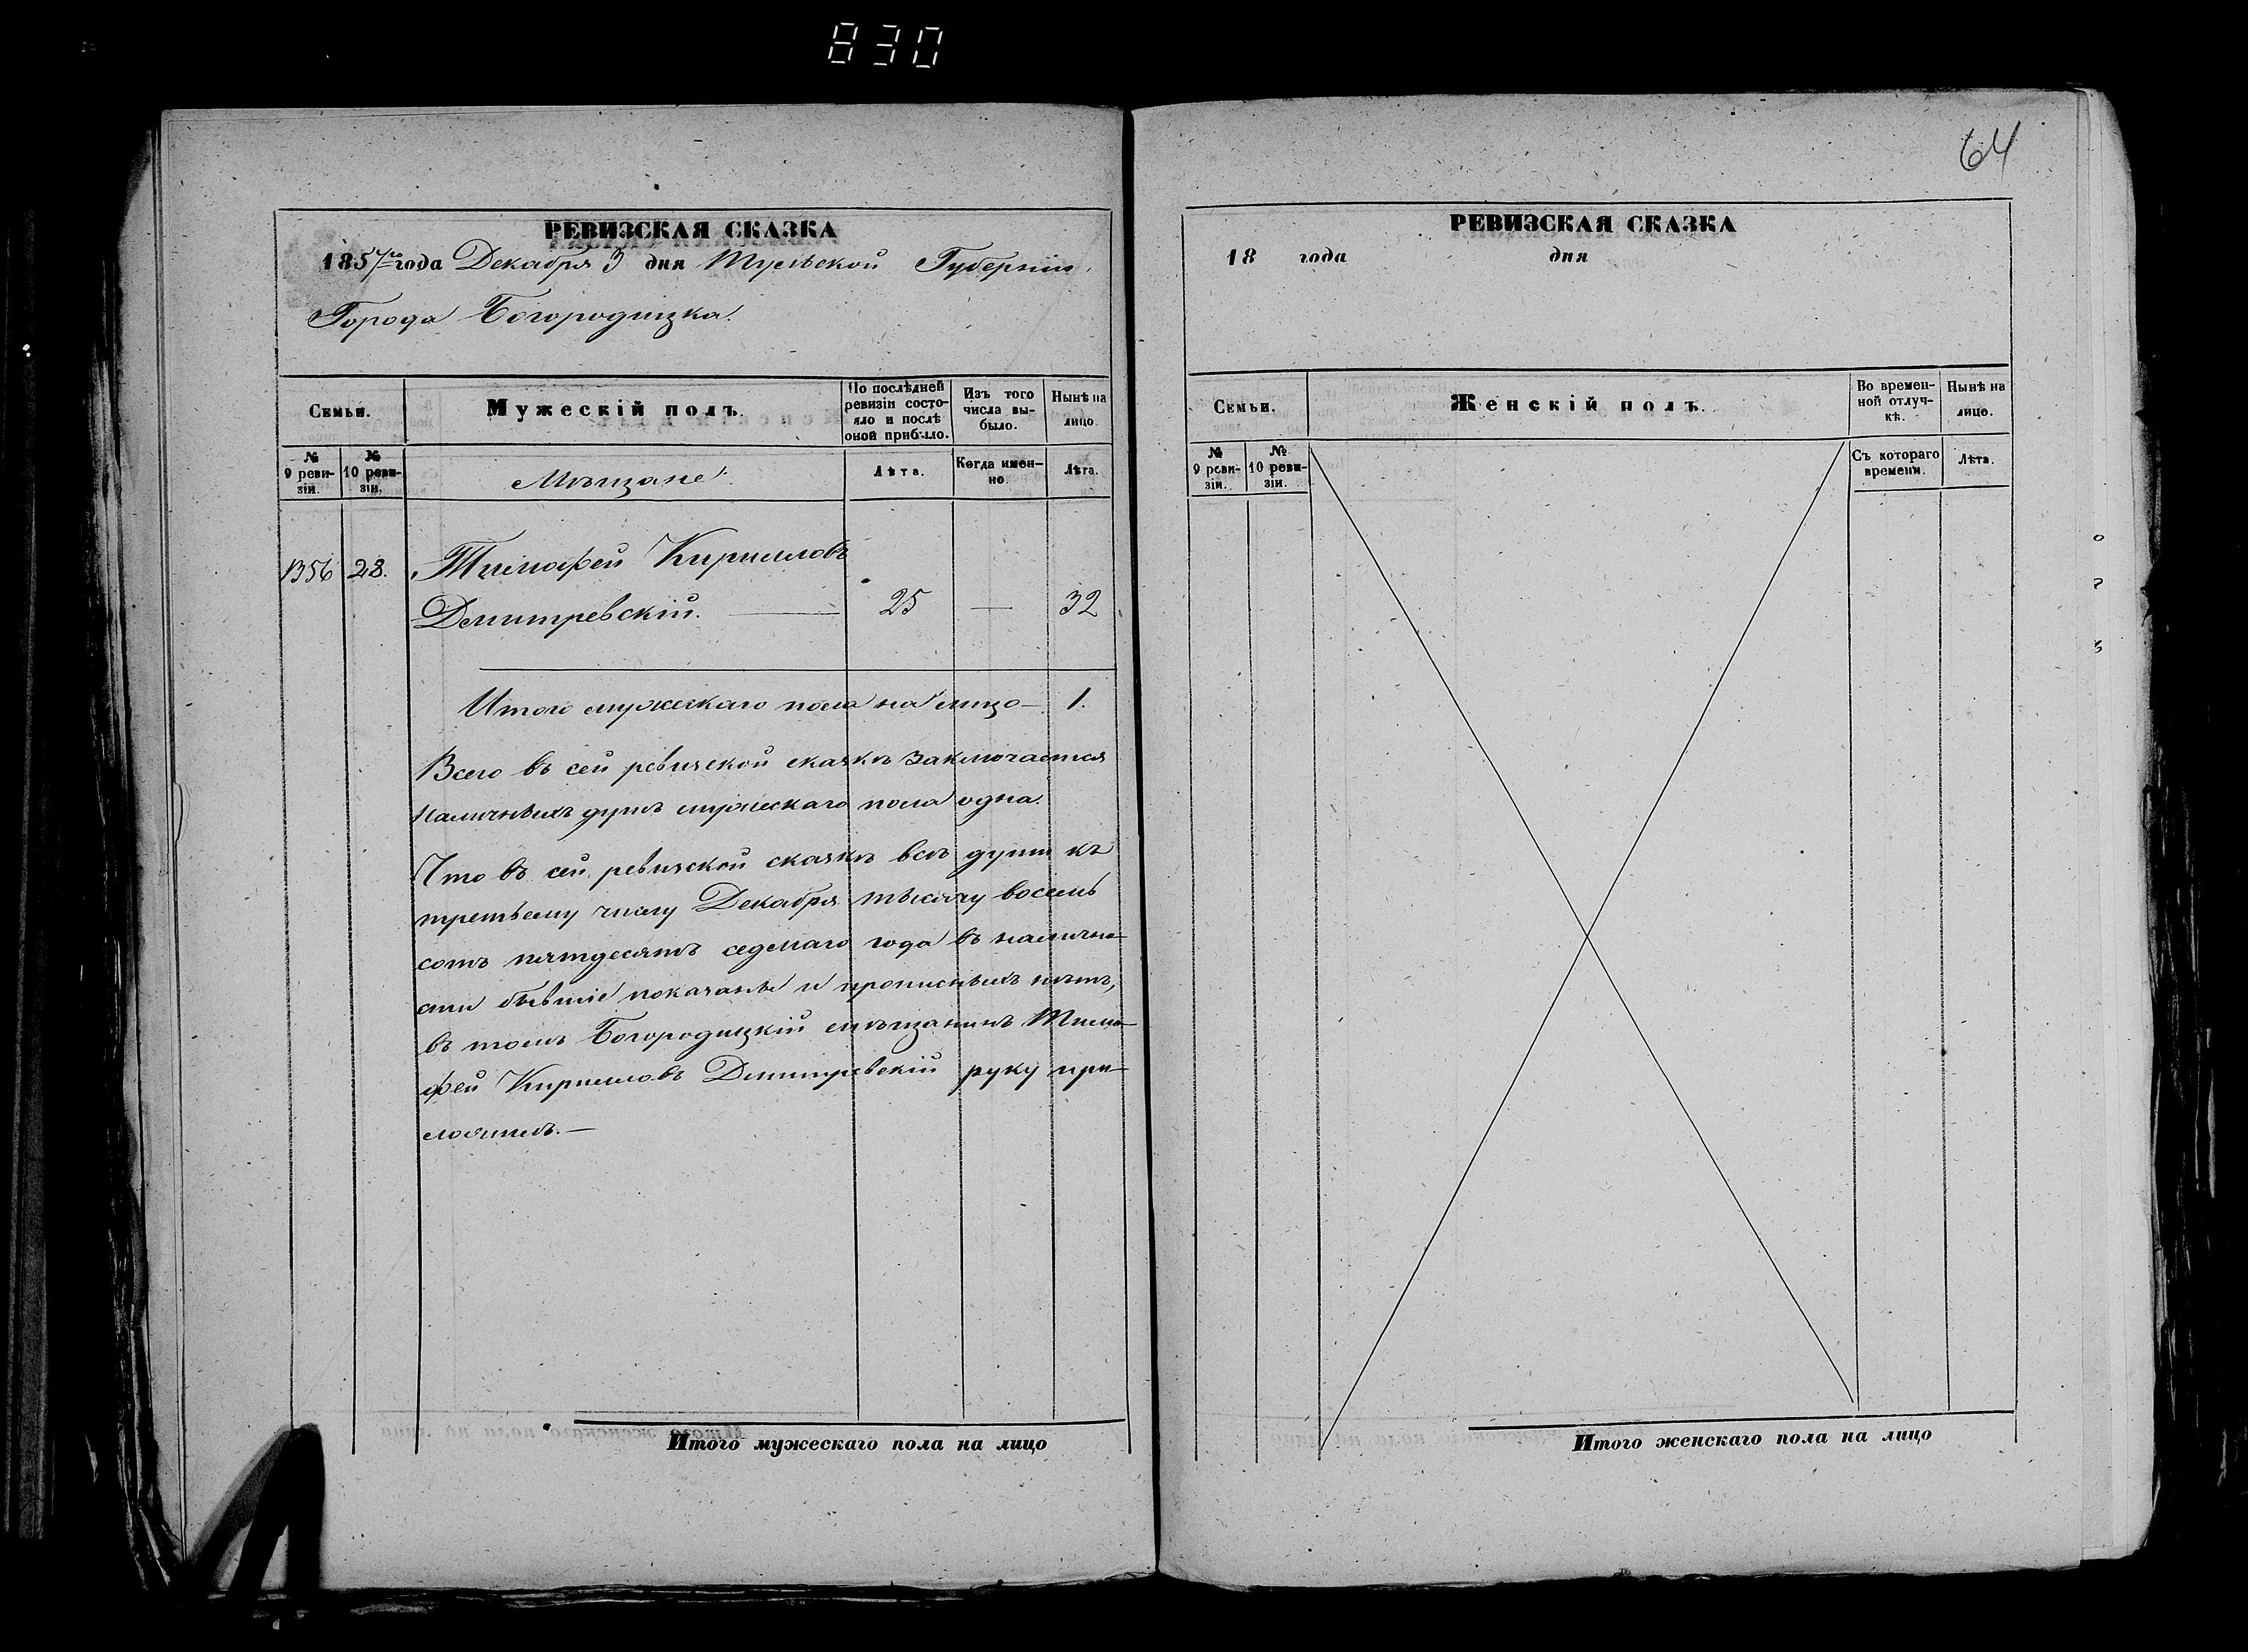 830
64
РЕВИЗСКАЯ СКАЗКА
1857го года Декабря 3 дня Тульской Губерніи
Города Богородицка.
Семьи.
Мужескій полъ.
По послѣдней ревизіи состояло и послѣ оной прибыло.
Изъ того числа выбыло.
Нынѣ на лицо.
№ 9 ревизіи.
№ 10 ревизіи.
Мѣщане
Лѣта.
Когда именно.
Лѣта.
1356 28. Тимофей Кирилловъ
Дмитревскій. — 25 — 32
Итого мужескаго пола на лицо — 1.
Всего въ сей ревизской сказкѣ заключается
наличныхъ душъ мужескаго пола одна.
Что въ сей ревизской сказкѣ всѣ души къ
третьему числу Декабря тысячу восемь
сотъ пятдесятъ седмаго года въ налично-
сти бывшіе показаны и прописныхъ нѣтъ,
въ томъ Богородицкій мѣщанинъ Тимо-
фей Кирилловъ Дмитревскій руку при-
ложилъ. —
Итого мужескаго пола на лицо
РЕВИЗСКАЯ СКАЗКА
18 года дня
Семьи.
Женскій полъ.
Во временной отлучкѣ.
Нынѣ на лицо.
№ 9 ревизіи.
№ 10 ревизіи.
Съ котораго времени.
Лѣта.
Итого женскаго пола на лицо